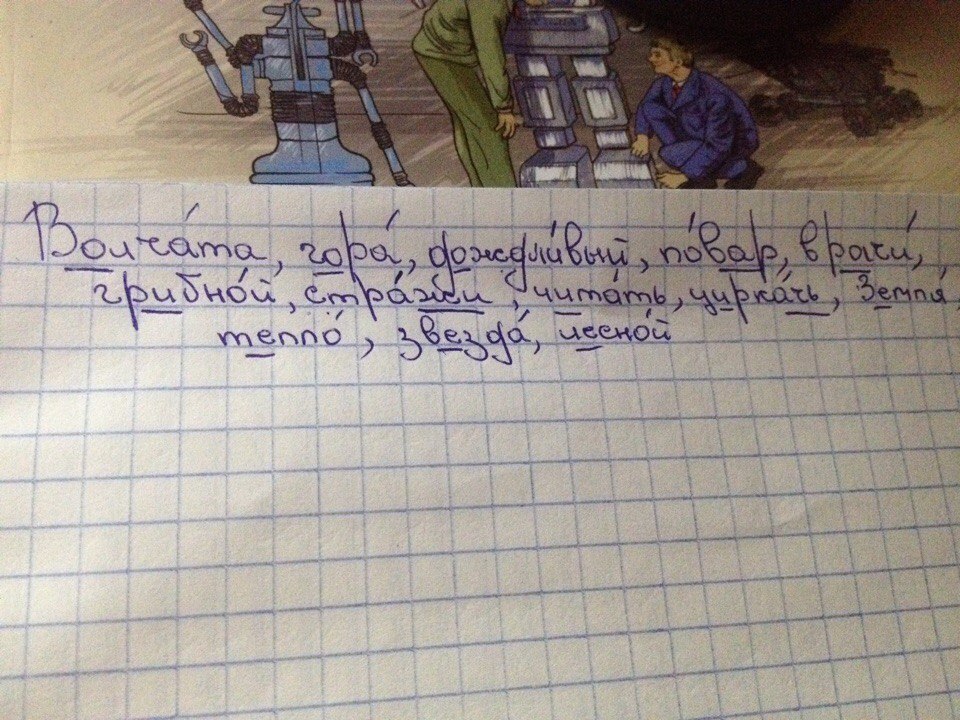 Волча́та, гора́, дождли́вый, по́вар, врачи́,
грибно́й, стра́жи, чита́ть, цирка́чь, Земля́,
тепло́, звезда́, лесно́й